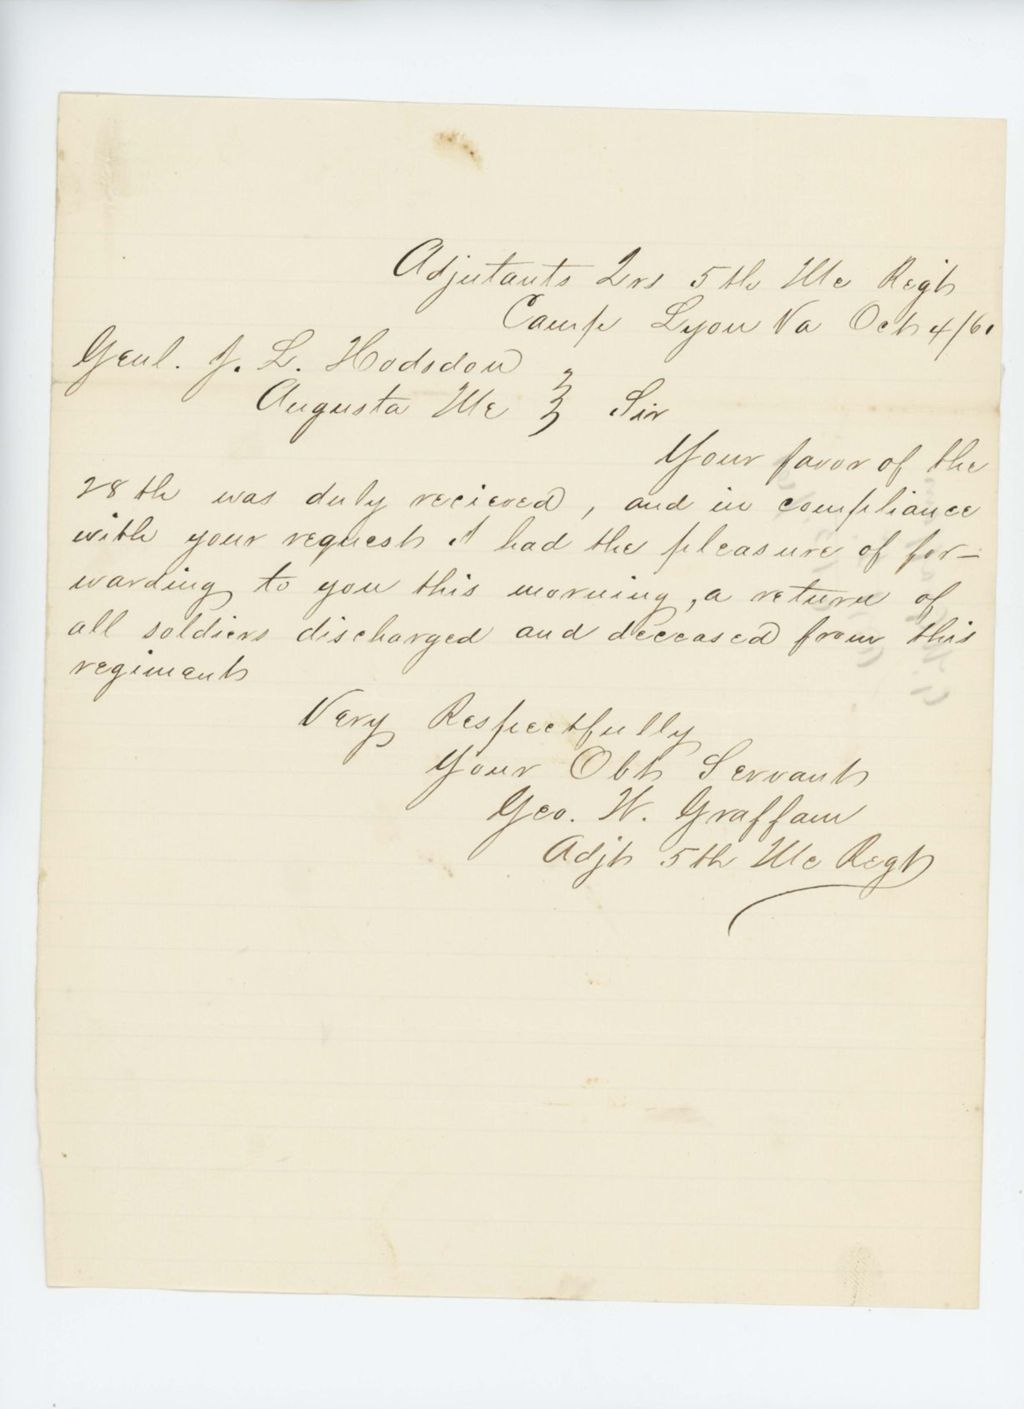 Adjutants Qrs 5th Me Regt
Camp Lyon Va Oct 4/61
Genl. J. L. Hodsdon
Augusta Me } Sir
Your favor of the
28th was duly recieved, and in compliance
with your request I had the pleasure of for-
warding to you this morning, a return of
all soldiers discharged and deceased from this
regiment
Very Respectfully
Your Obt Servant
Geo. W. Graffam
Adjt 5th Me Regt